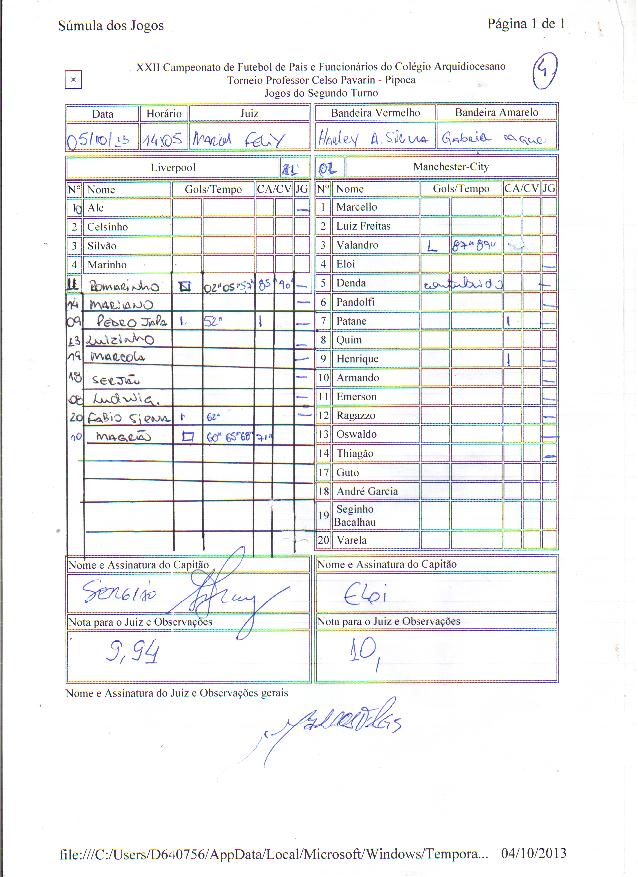 Súmula dos Jogos Página 1 de 1
XXII Campeonato de Futebol de Pais e Funcionários do Colégio Arquidiocesano
Torneio Professor Celso Pavarin - Pipoca
Jogos do Segundo Turno
4
x
Data Horário Juiz Bandeira Vermelho Bandeira Amarelo
05/10/13 14:05 Harley A. Silva Gabriel
Liverpool 11 02 Manchester-City
Nº Nome Gols/Tempo CA/CV JG Nº Nome Gols/Tempo CA/CV JG
10 Ale 1 Marcello
2 Celsinho 2 Luiz Freitas
3 Silvão 3 Valandro L 87" 89"
4 Marinho 4 Eloi
11 Romarinho 02" 05" 57" 85" 90" 5 Denda
14 MARIANO 6 Pandolfi
09 PEDRO JAPA 1 52" 7 Patane
13 Luizinho 8 Quim
19 MARCOLA 9 Henrique
18 SERJÃO 10 Armando
08 Ludwig. 11 Emerson
20 Fabio Siena 1 62" 12 Ragazzo
10 MAGRÃO 60" 65" 68" 71" 13 Oswaldo
14 Thiagão
17 Guto
18 André Garcia
19 Seginho
Bacalhau
20 Varela
Nome e Assinatura do Capitão Nome e Assinatura do Capitão
Eloi
Nota para o Juiz e Observações Nota para o Juiz e Observações
9,94 10,
Nome e Assinatura do Juiz e Observações gerais
file:///C:/Users/D640756/AppData/Local/Microsoft/Windows/Tempora... 04/10/2013